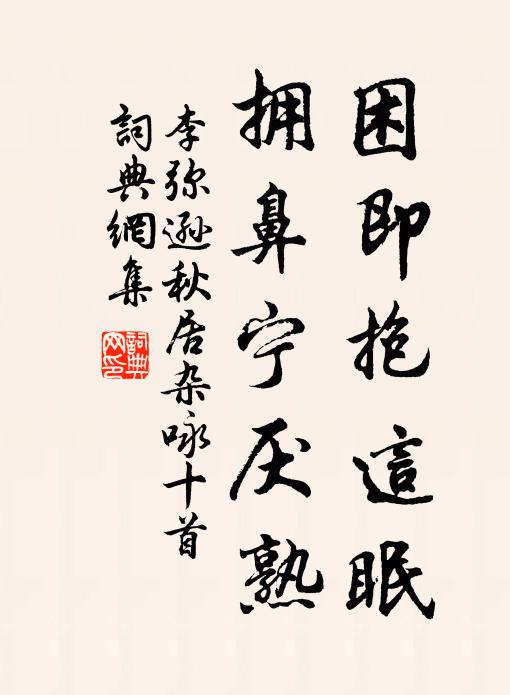 困即抱這眠
拥鼻宁厌熟
李弥逊秋居杂咏十首
詞典網集
詞典
网印